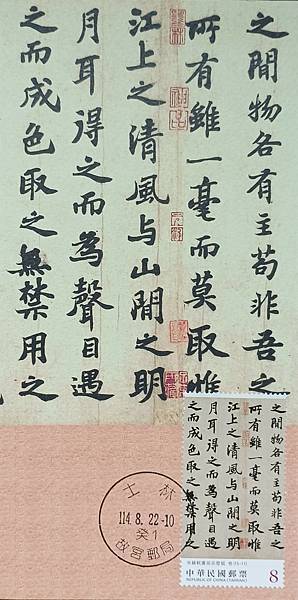 之間物各有主苟非吾之
所有雖一毫而莫取惟
江上之清風与山間之明
月耳得之而為聲目遇
之而成色取之無禁用之
士林
114.8.22-10
癸1
故宮郵局
之間物各有主苟非吾之
所有雖一毫而莫取惟
江上之清風与山間之明
月耳得之而為聲目遇
之而成色取之無禁用之
中華民國郵票
REPUBLIC OF CHINA (TAIWAN)
8